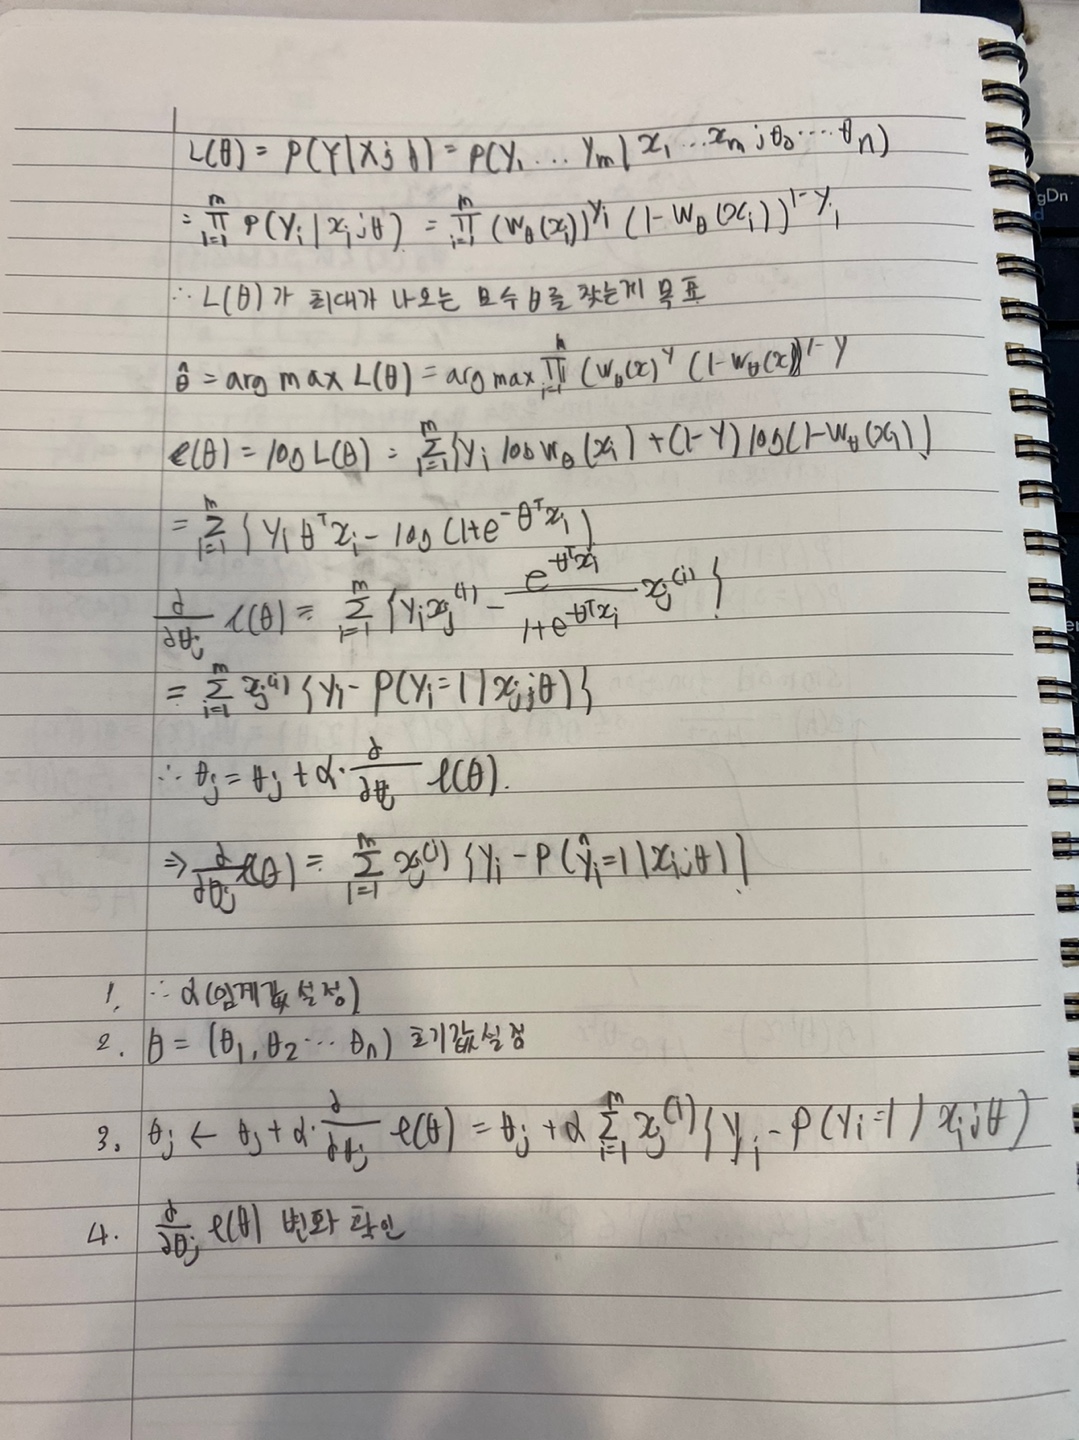 L(θ) = P(Y|X;θ) = P(Y₁ ... Yₘ | x₁ ... xₘ ; θ₀ .... θn)
= ∏ᵢ₌₁ᵐ P(Yᵢ | xᵢ;θ) = ∏ᵢ₌₁ᵐ (W_θ(xᵢ))^Yᵢ (1-W_θ(xᵢ))^1-Yᵢ
∴ L(θ)가 최대가 나오는 모수 θ를 찾는게 목표
θ̂ = arg max L(θ) = arg max ∏ᵢ₌₁ⁿ (W_θ(x)^Y (1-W_θ(x))^1-Y
ℓ(θ) = log L(θ) = Σᵢ₌₁ᵐ{Yᵢ log W_θ(xᵢ) + (1-Y) log(1-W_θ(xᵢ)}
= Σᵢ₌₁ᵐ { Yᵢ θᵀxᵢ - log (1+e^-θᵀxᵢ}
∂/∂θⱼ ℓ(θ) = Σᵢ₌₁ᵐ {Yᵢxⱼ⁽ⁱ⁾ - e^-θᵀxᵢ / 1+e^-θᵀxᵢ xⱼ⁽ⁱ⁾}
= Σᵢ₌₁ᵐ xⱼ⁽ⁱ⁾ {Yᵢ - P(Yᵢ=1|xᵢ;θ)}
∴ θⱼ = θⱼ + α·∂/∂θⱼ ℓ(θ).
⇒ ∂/∂θⱼ ℓ(θ) = Σᵢ₌₁ᵐ xⱼ⁽ⁱ⁾ {Yᵢ - P(Ŷᵢ=1|xᵢ;θ)}
1. ∴ α(임계값 설정)
2. θ = (θ₁, θ₂ ... θn) 초기값 설정
3. θⱼ ← θⱼ + α·∂/∂θⱼ ℓ(θ) = θⱼ + α Σᵢ₌₁ᵐ xⱼ⁽ⁱ⁾{Yᵢ - P(Yᵢ=1 | xᵢ;θ)
4. ∂/∂θⱼ ℓ(θ) 변화 확인